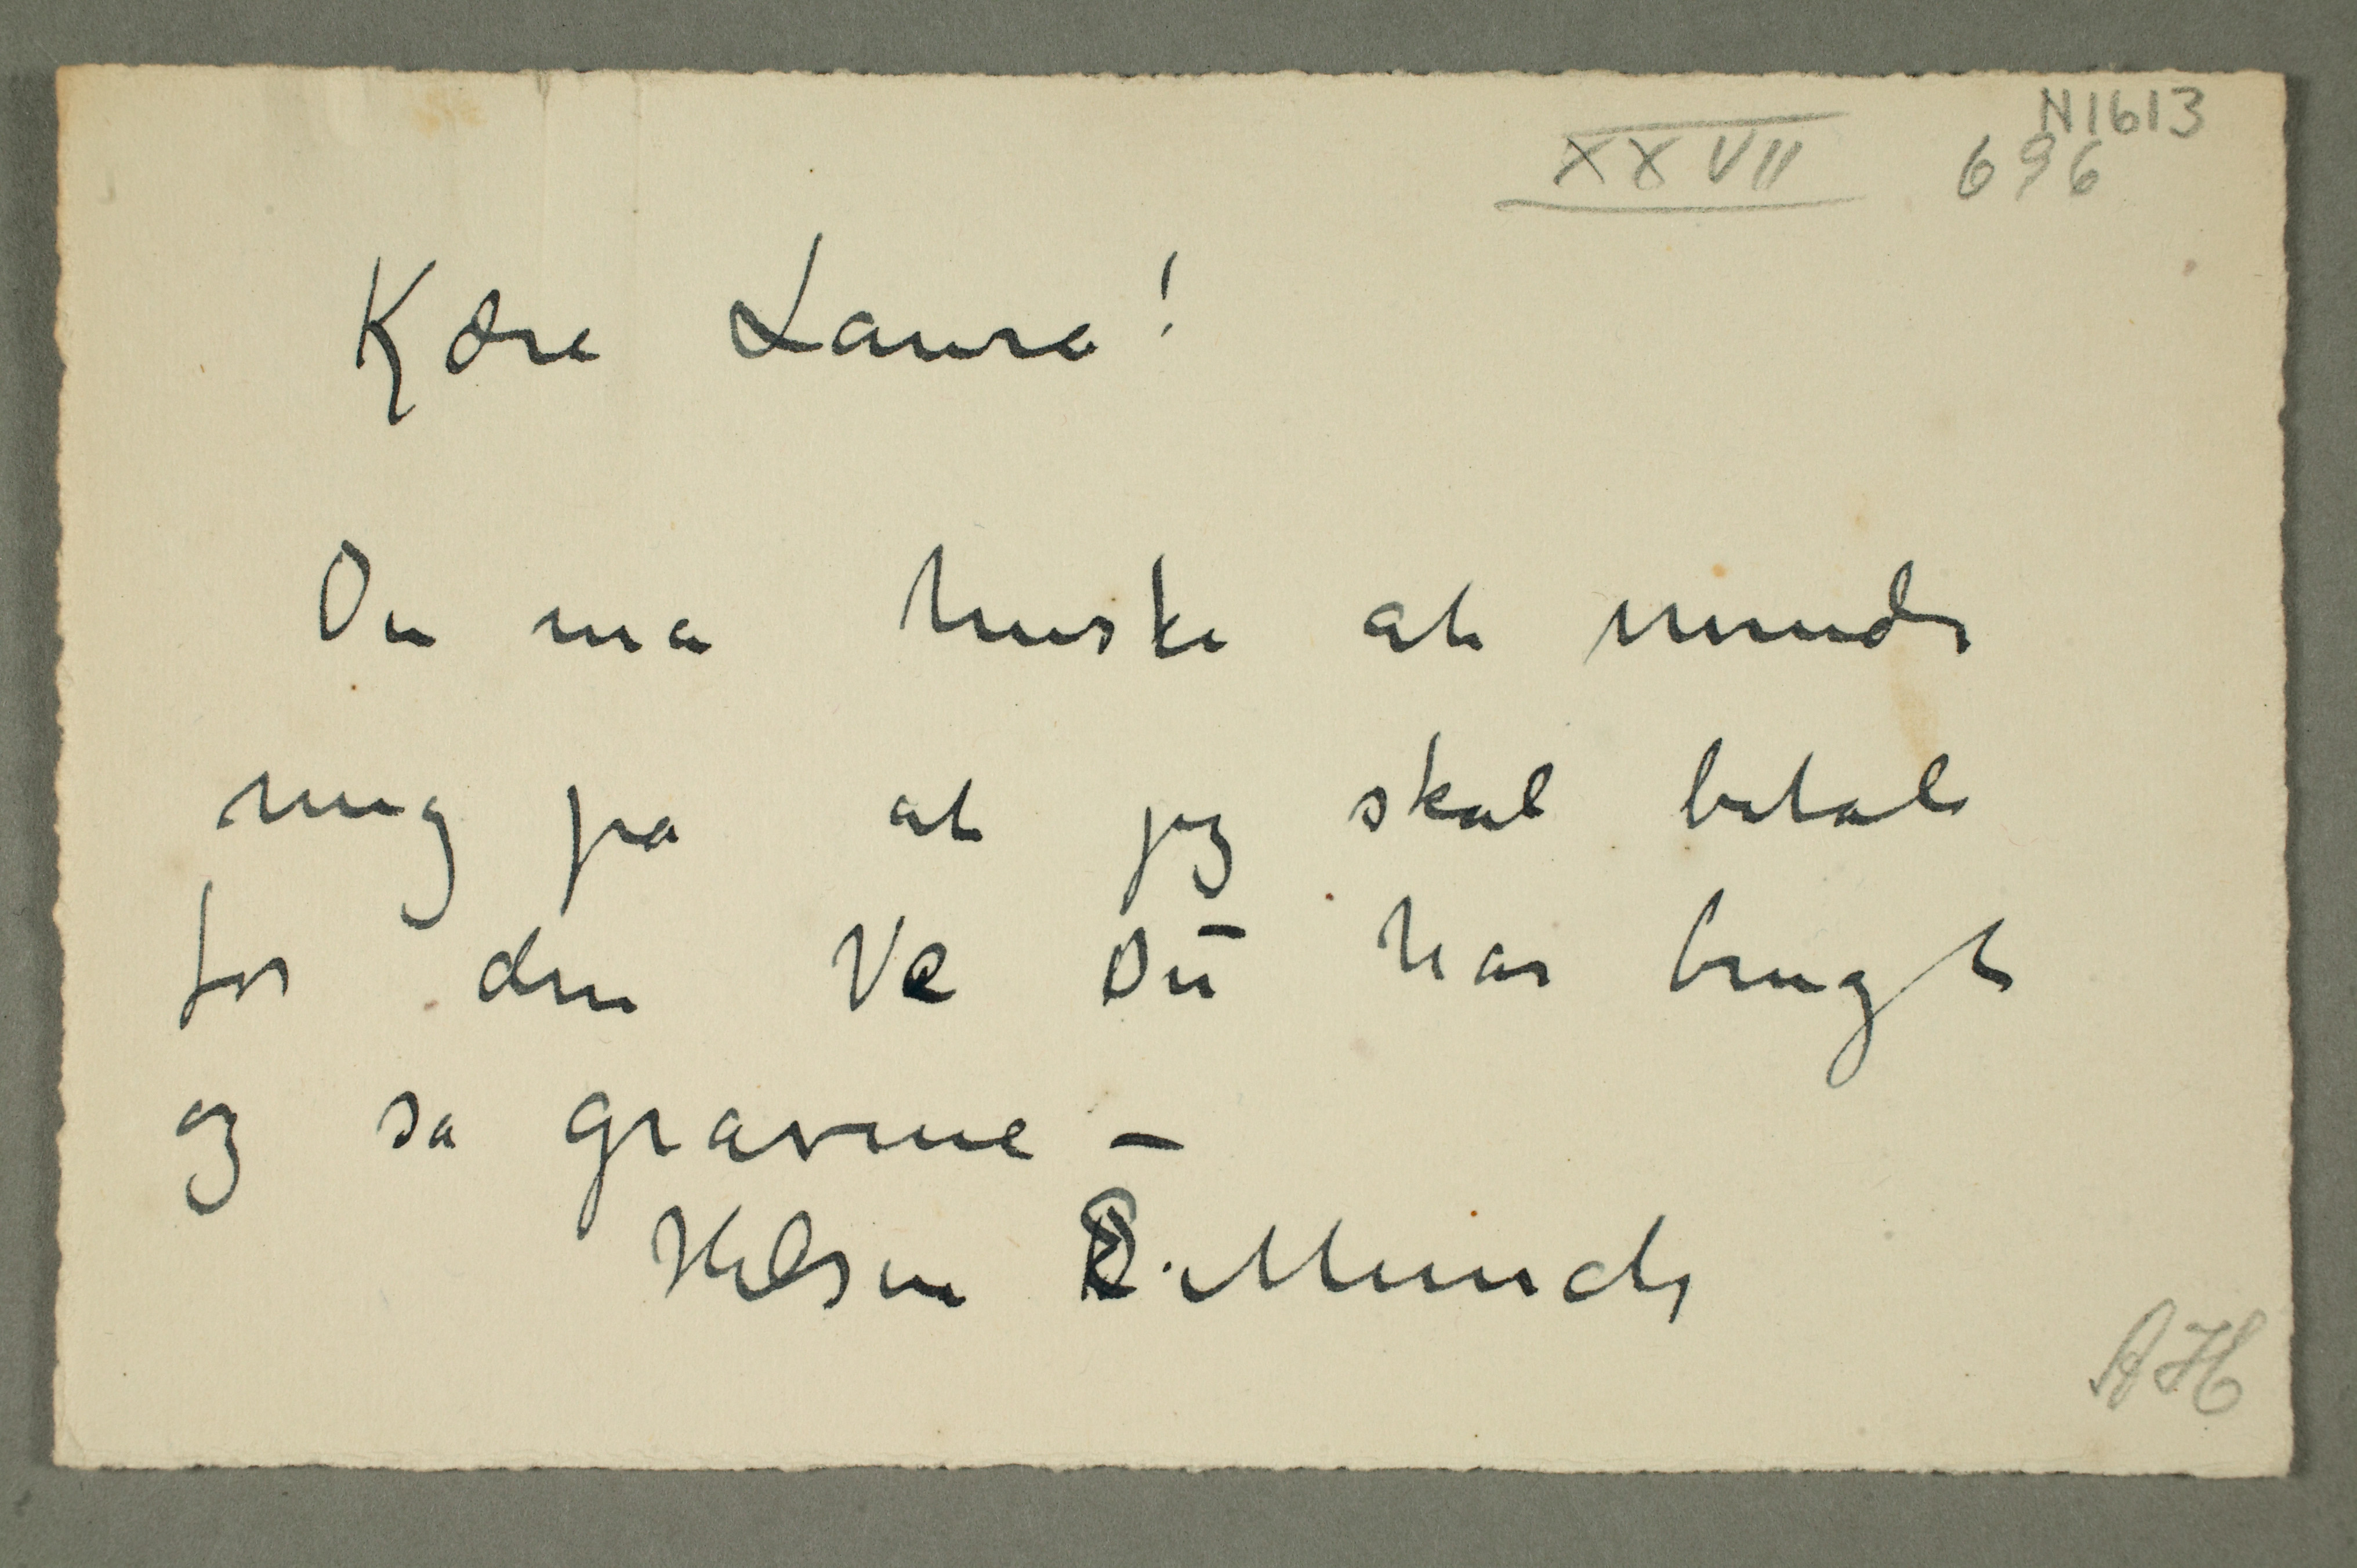 N1613
XXVII 696
Kære Laura!
Du må huske at minde
mig på at jeg skal betale
for den Ve Du har brugt
og så gravene –
Hilsen E. Munch
AH